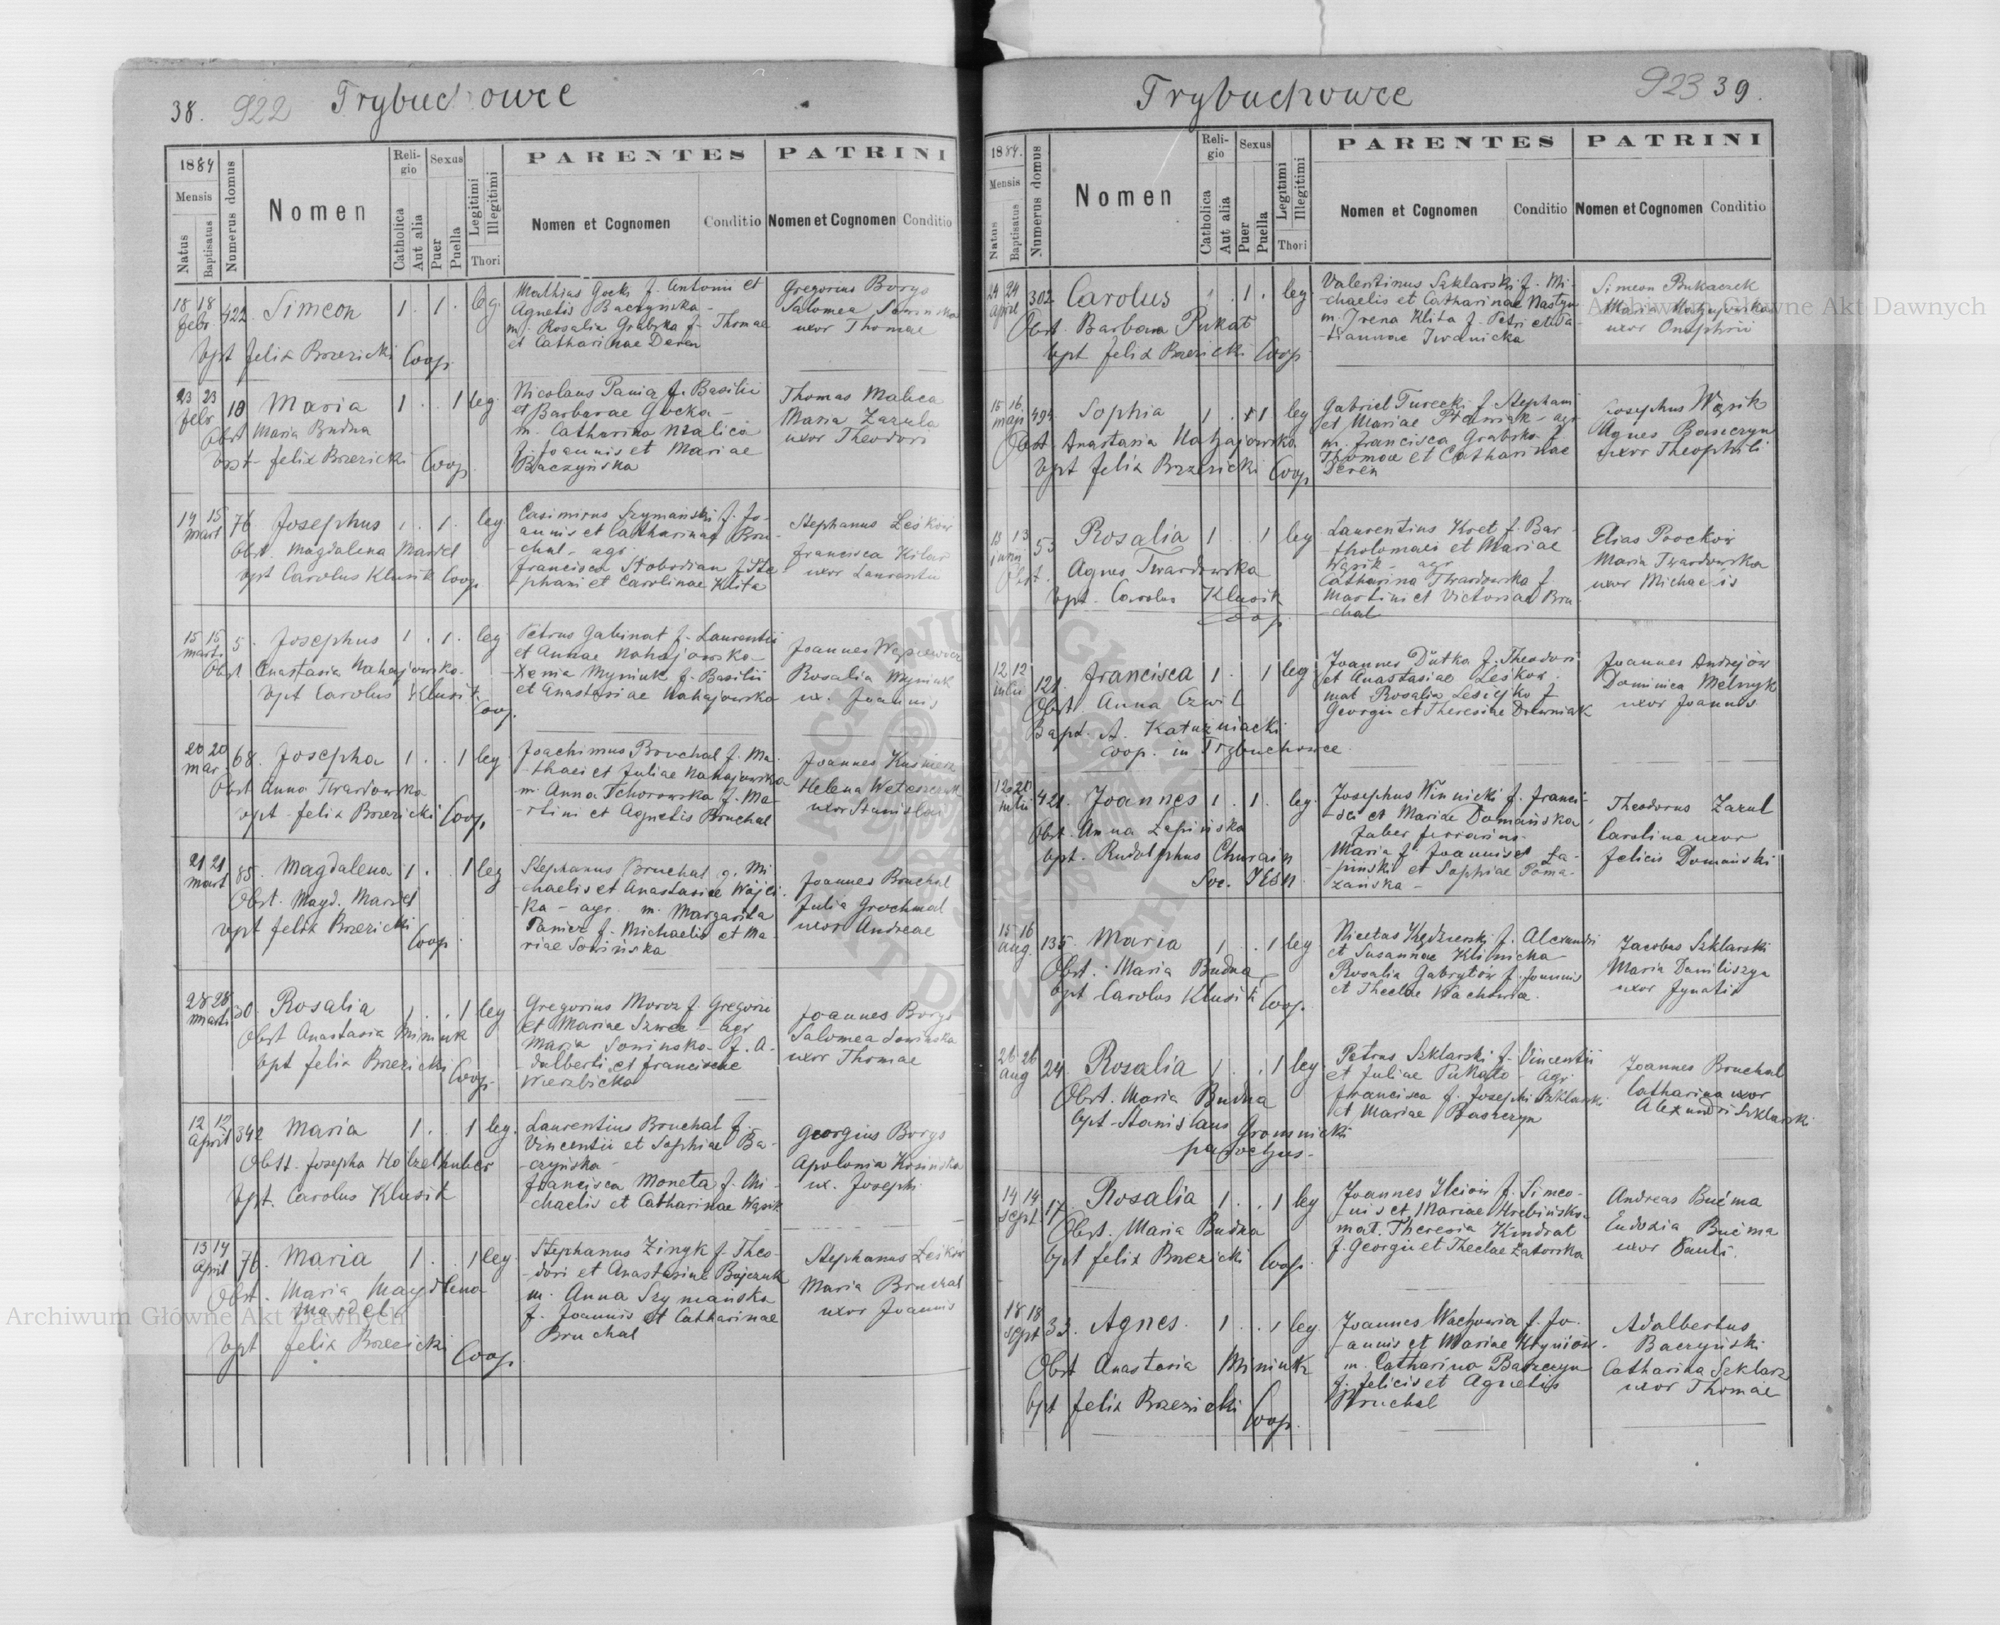 38. 922 Trybuchowce
1884
Mensis
Natus
Baptisatus
Numerus domus
Nomen
Religio
Catholica
Aut alia
Sexus
Puer
Puella
Legitimi
Illegitimi
Thori
PARENTES
Nomen et Cognomen
Conditio
PATRINI
Nomen et Cognomen
Conditio
18 18 febr 422 Simeon 1 . 1 . leg.
Mathias Gocki f. Antonii et
Agnetis Baczyńska -
m. Rosalia Grabska f. Thomae
et Catharinae Deren
Gregorius Borys
Salomea Sowinska
uxor Thomae
bpt felix Brzezicki Coop.
23 23 febr 10 Maria 1 . . 1 leg
Obst Maria Budna
bpt - felix Brzezicki Coop.
Nicolaus Pania f. Basilii
et Barbarae Gocka -
m. Catharina Malica
f. Joannis et Mariae
Baczyńska
Thomas Malica
Maria Zazula
uxor Theodori
14 15 mart 76 Josephus 1 . 1 . leg.
Obst. Magdalena Mardel
bpt Carolus Klusik Coop.
Casimirus Szymański f. Jo-
annis et Catharinae Bru-
-chal - agr.
francisca Slobodian f. Ste
phani et Carolinae Klita
Stephanus Leśków
francisca
uxor Laurentii
15 15 marti 5. Josephus 1 . 1 . leg
Obst Anastasia Nahajowska
bpt Carolus Klusik Coop.
Petrus Gabinat f. Laurentii
et Annae Nahajowska
- Xenia Myniuk f. Basilii
et Anastasiae Nahajowska
Joannes
Rosalia Myniuk
ux. Joannis
20 20 mar 68. Josepha 1 . . 1 leg
Obst Anna Twardowska
bpt - felix Brzezicki Coop.
Joachimus Bruchal f. Ma-
-thaei et Juliae Nahajowska
m. Anna Tchorowska f. Ma-
-rtini et Agnetis Bruchal
Joannes
Helena
uxor Stanislai
21 21 mart 85. Magdalena 1 . . 1 leg
Obst. Magd. Mardel
bpt felix Brzezicki Coop.
Stephanus Bruchal f. Mi-
chaelis et Anastasiae Wójci-
-ka - agr. m. Margarita
Paniea f. Michaelis et Ma-
riae Sowińska
Joannes Bruchal
Julia Grochmal
uxor Andreae
28 28 marti 30. Rosalia 1 . . 1 leg
Obst Anastasia Miniuk
bpt felix Brzezicki Coop.
Gregorius Moroz f. Gregorii
et Mariae Szwec - agr
Maria Sowinska - f. A-
-dalberti et franciscae
Wierzbicka
Joannes Borys
Salomea Sowinska
uxor Thomae
12 12 april 342 Maria 1 . . 1 leg.
Obst. Josepha Hölzelhuber
bpt. Carolus Klusik
Laurentius Bruchal f.
Vincentii et Sophiae Ba-
-czyńska -
francisca Moneta f. Mi-
chaelis et Catharinae Wąsik
Georgius Borys
Apolonia Kosinska
ux. Josephi
13 14 april 76. Maria 1 . . 1 leg
Obst. Maria Magdlena
Mardel
bpt felix Brzezicki Coop.
Stephanus Zinyk f. Theo-
-dori et Anastasiae Bojczuk
m. Anna Szymańska
f. Joannis et Catharinae
Bruchal
Stephanus Leśków
Maria Bruchal
uxor Joannis
Trybuchowce 923 39.
1884.
Mensis
Natus
Baptisatus
Numerus domus
Nomen
Religio
Catholica
Aut alia
Sexus
Puer
Puella
Legitimi
Illegitimi
Thori
PARENTES
Nomen et Cognomen
Conditio
PATRINI
Nomen et Cognomen
Conditio
24 24 april 302 Carolus 1 . 1 . leg
Obst. Barbara Pukat
bpt felix Brzezicki Coop
Valentinus Szklarski f. Mi-
chaelis et Catharinae
m. Irena Klita f. Petri et Ta-
-tiannae Iwanicka
Simeon
Maria
uxor Onuphrii
15 16 maji 494 Sophia 1 . 1 leg
Obst Anastasia Nahajowska
bpt felix Brzezicki Coop.
Gabriel Turecki f. Stephani
et Mariae - agr
m. francisca Grabska f.
Thomae et Catharinae
Deren
Josephus Wąsik
Agnes Baszczyn
uxor Theophili
13 13 junii 53 Rosalia 1 . . 1 leg
Obst. Agnes Twardowska
bpt. Carolus Klusik
Coop.
Laurentius Kret f. Bar-
-tholomaei et Mariae
Wąsik - agr
Catharina Twardowska f.
Martini et Victoriae Bru-
-chal
Elias Proćków
Maria Twardowska
uxor Michaelis
12 12 julii 121 francisca 1 . 1 leg
Obst. Anna Czwil
Bapt. A. Katurniacki
coop. in Trybuchowce.
Joannes Dutka f. Theodori
et Anastasiae Leśkow.
mat. Rosalia f.
Georgii et Theresiae Drewniak
Joannes Andrejów
Dominica Melnyk
uxor Joannis
12 20 julii 421. Joannes 1 . 1 . leg.
Obst. Anna Łapińska
bpt. Rudolphus
Soc. JESU.
Josephus Winnicki f. franci-
-sci et Mariae Domańska
faber ferrarius -
Maria f. Joannis et Ła-
pinski et Sophiae Poma-
zańska -
Theodorus Zazul
Carolina uxor
felicis Domański
15 16 aug. 135. Maria 1 . . 1 leg
Obst. Maria Budna
bpt Carolus Klusik Coop.
Nicetas Kędzierski f. Alexandri
et Susannae Klinicka
Rosalia Gabrylów f. Joannis
et Theclae Wachowia.
Jacobus Szklarski
Maria Daniliszyn
uxor Ignatii
26 26 aug 24 Rosalia 1 . . 1 leg
Obst. Maria Budna
bpt - Stanislaus Gromnicki
parochus -
Petrus Szklarski f. Vincentii
et Juliae Pukato - agr
francisca f. Josephi Szklarski
et Mariae Baszczyn
Joannes Bruchal
Catharina uxor
Alexandri Szklarski
14 14 sept. 17. Rosalia 1 . . 1 leg
Obst. Maria Budna
bpt felix Brzezicki Coop.
Joannes Ilciów f. Simeo-
nis et Mariae Hrebińska
mat. Theresia Kindrat
f. Georgii et Theclae Zatorska
Andreas Bucma
Eudoxia Bucma
uxor Pauli.
18 18 sept 33. Agnes. 1 . . 1 leg
Obst Anastasia Miniuk
bpt felix Brzezicki Coop.
Joannes Wachowia f. Jo-
annis et Mariae
m. Catharina Baszczyn
f. felicis et Agnetis
Bruchal
Adalbertus
Baczyński
Catharina Szklarz
uxor Thomae
Archiwum Główne Akt Dawnych
Archiwum Główne Akt Dawnych